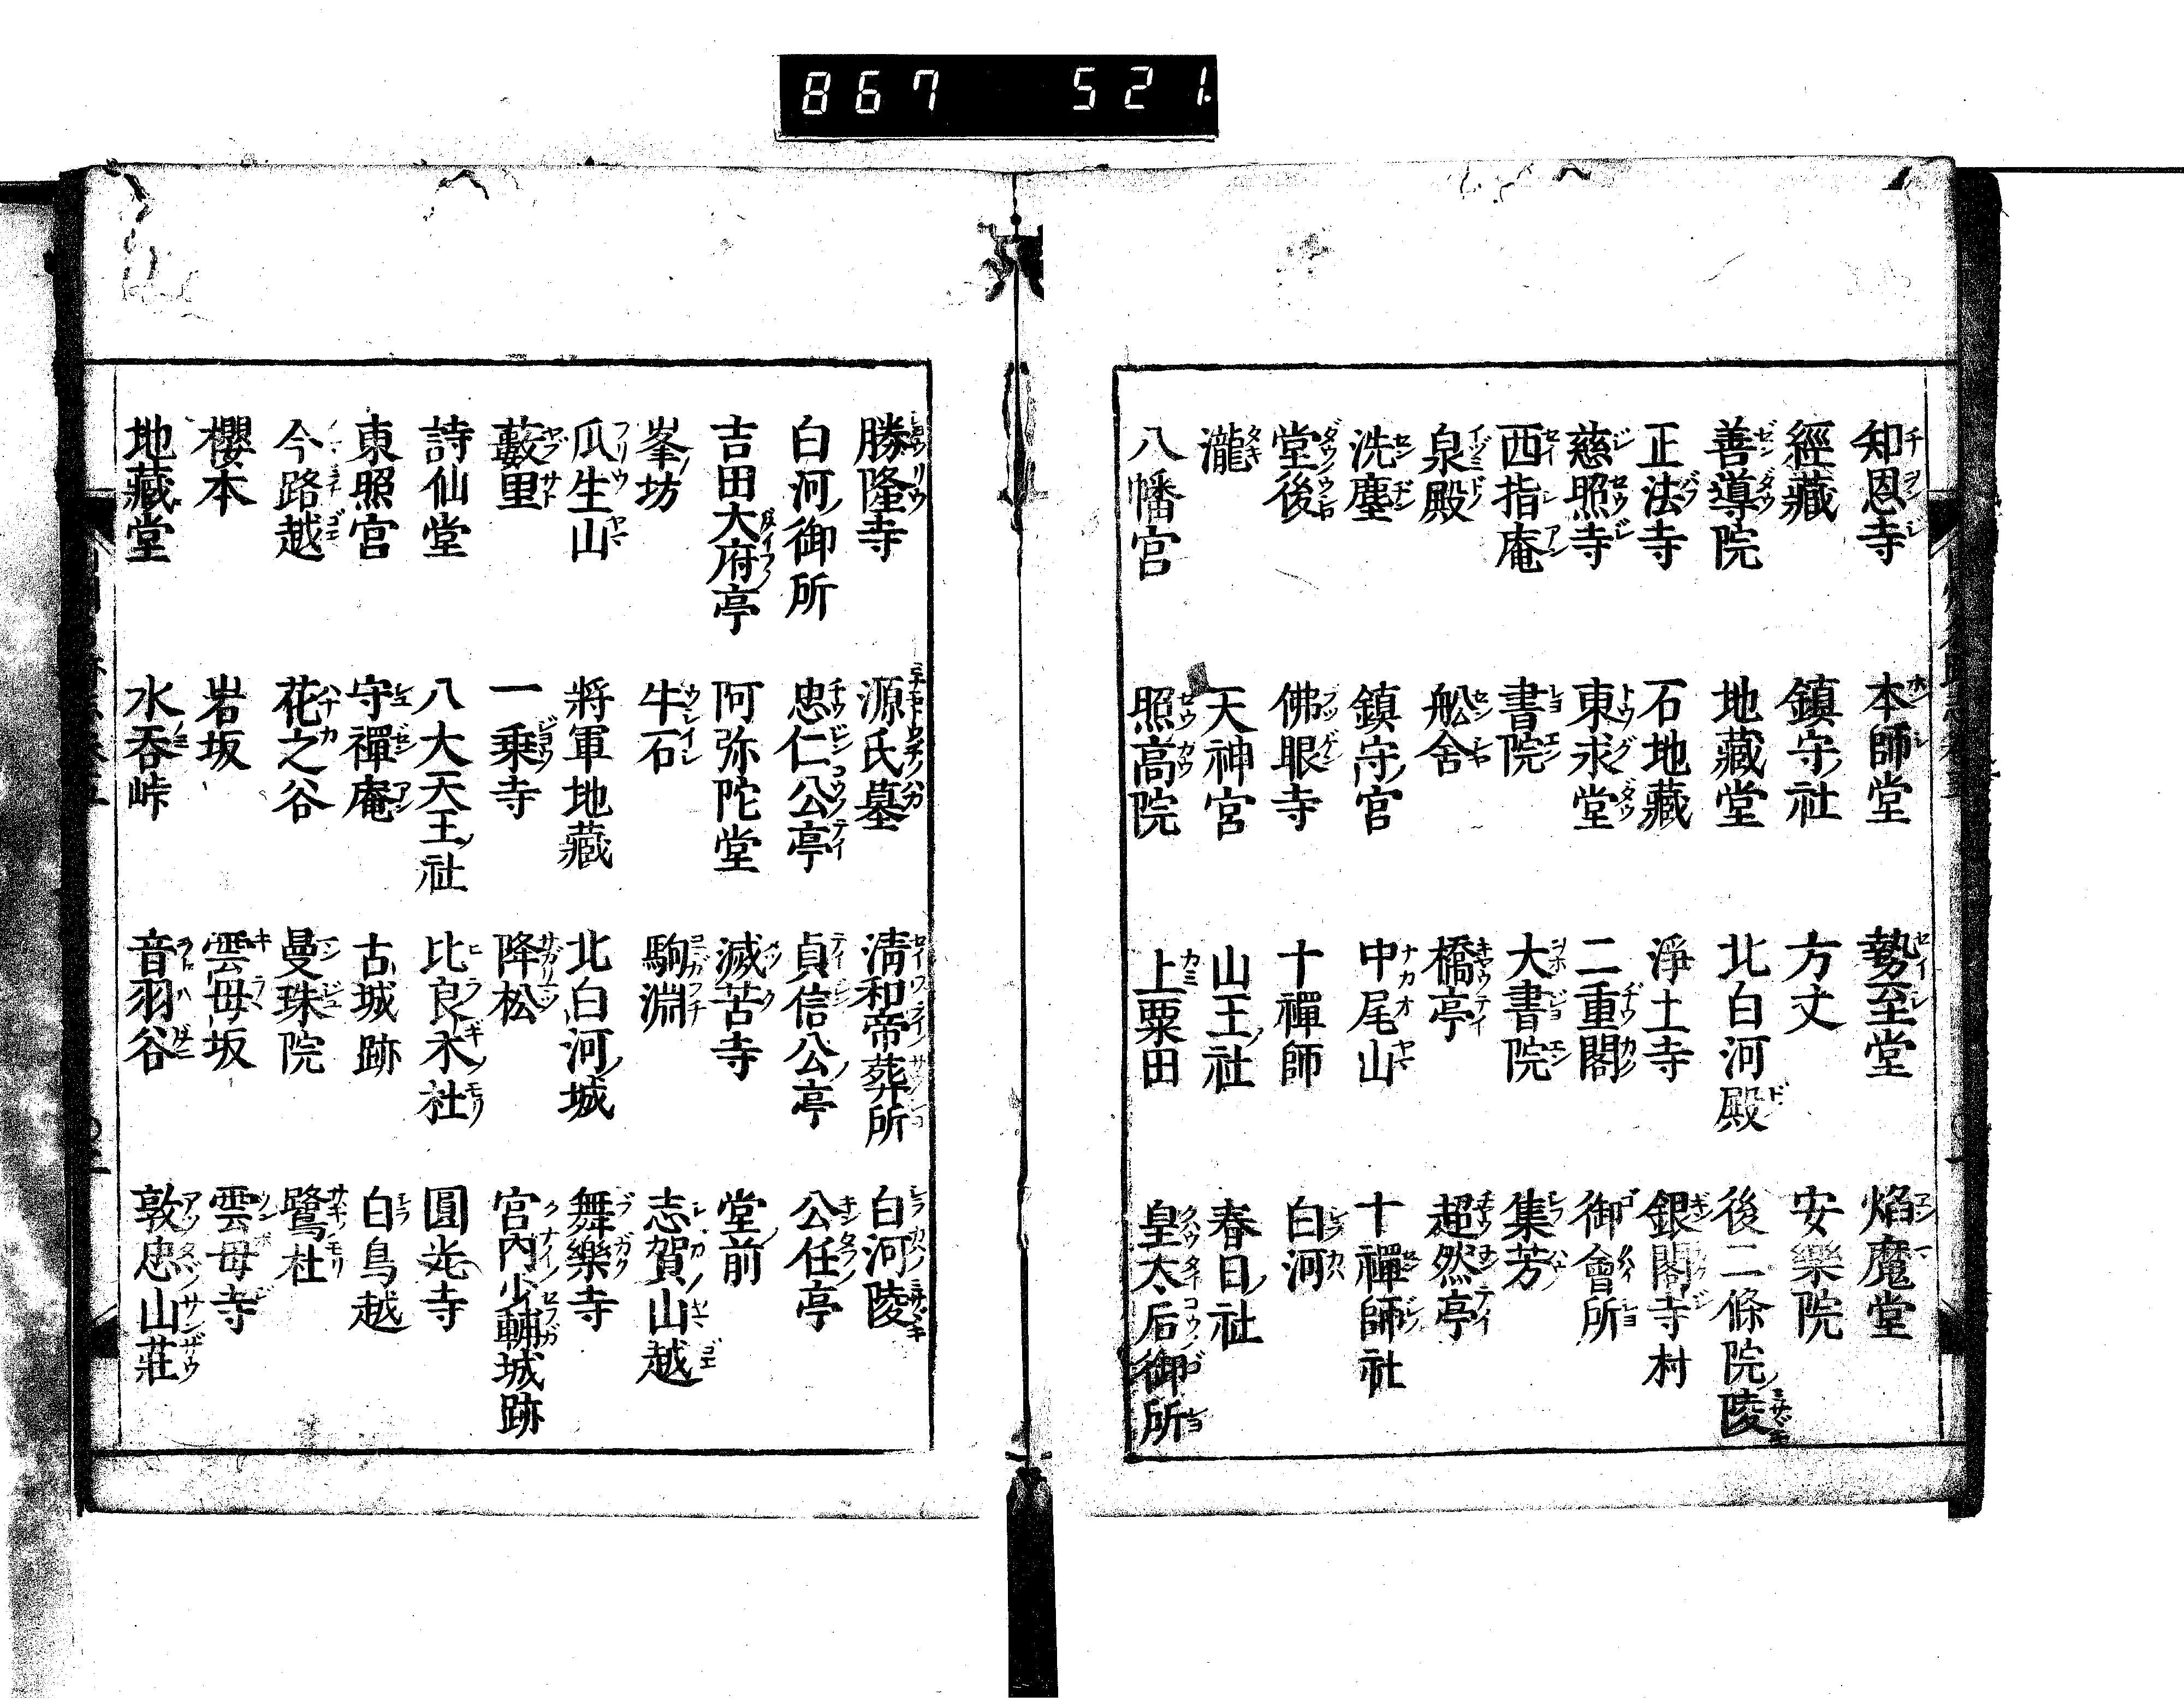 867 521
知恩寺 本師堂 勢至堂 焔魔堂
經藏 鎮守ノ社 方丈 安樂院
善導院 地藏堂 北白河殿 後二條院ノ陵
正法寺 石地藏 淨土寺 銀閣寺村
慈照寺 東求堂 二重閣 御會所
西指庵 書院 大書院 集芳
泉殿 舩舍 橋亭 超然亭
洗塵 鎮守ノ宮 中尾山 十禪師社
堂後 佛眼寺 十禪師 白河
瀧 天神宮 山王ノ社 春日ノ社
八幡宮 照高院 上粟田 皇太后御所
勝隆寺 源氏墓 淸和帝葬所 白河陵
白河ノ御所 忠仁公亭 貞信公ノ亭 公任亭
吉田大府亭 阿弥陀堂 滅苦寺 堂ノ前
峯ノ坊 牛石 駒淵 志賀山越
瓜生山 將軍地藏 北白河ノ城 舞樂寺
藪里 一乗寺 降松 宮內少輔城跡
詩仙堂 八大天王ノ社 比良木社 圓光寺
東照宮 守禪庵 古城跡 白鳥越
今路越 花之谷 曼珠院 鷺杜
櫻本 岩坂 雲母坂 雲母寺
地藏堂 水呑峠 音羽谷 敦忠山莊